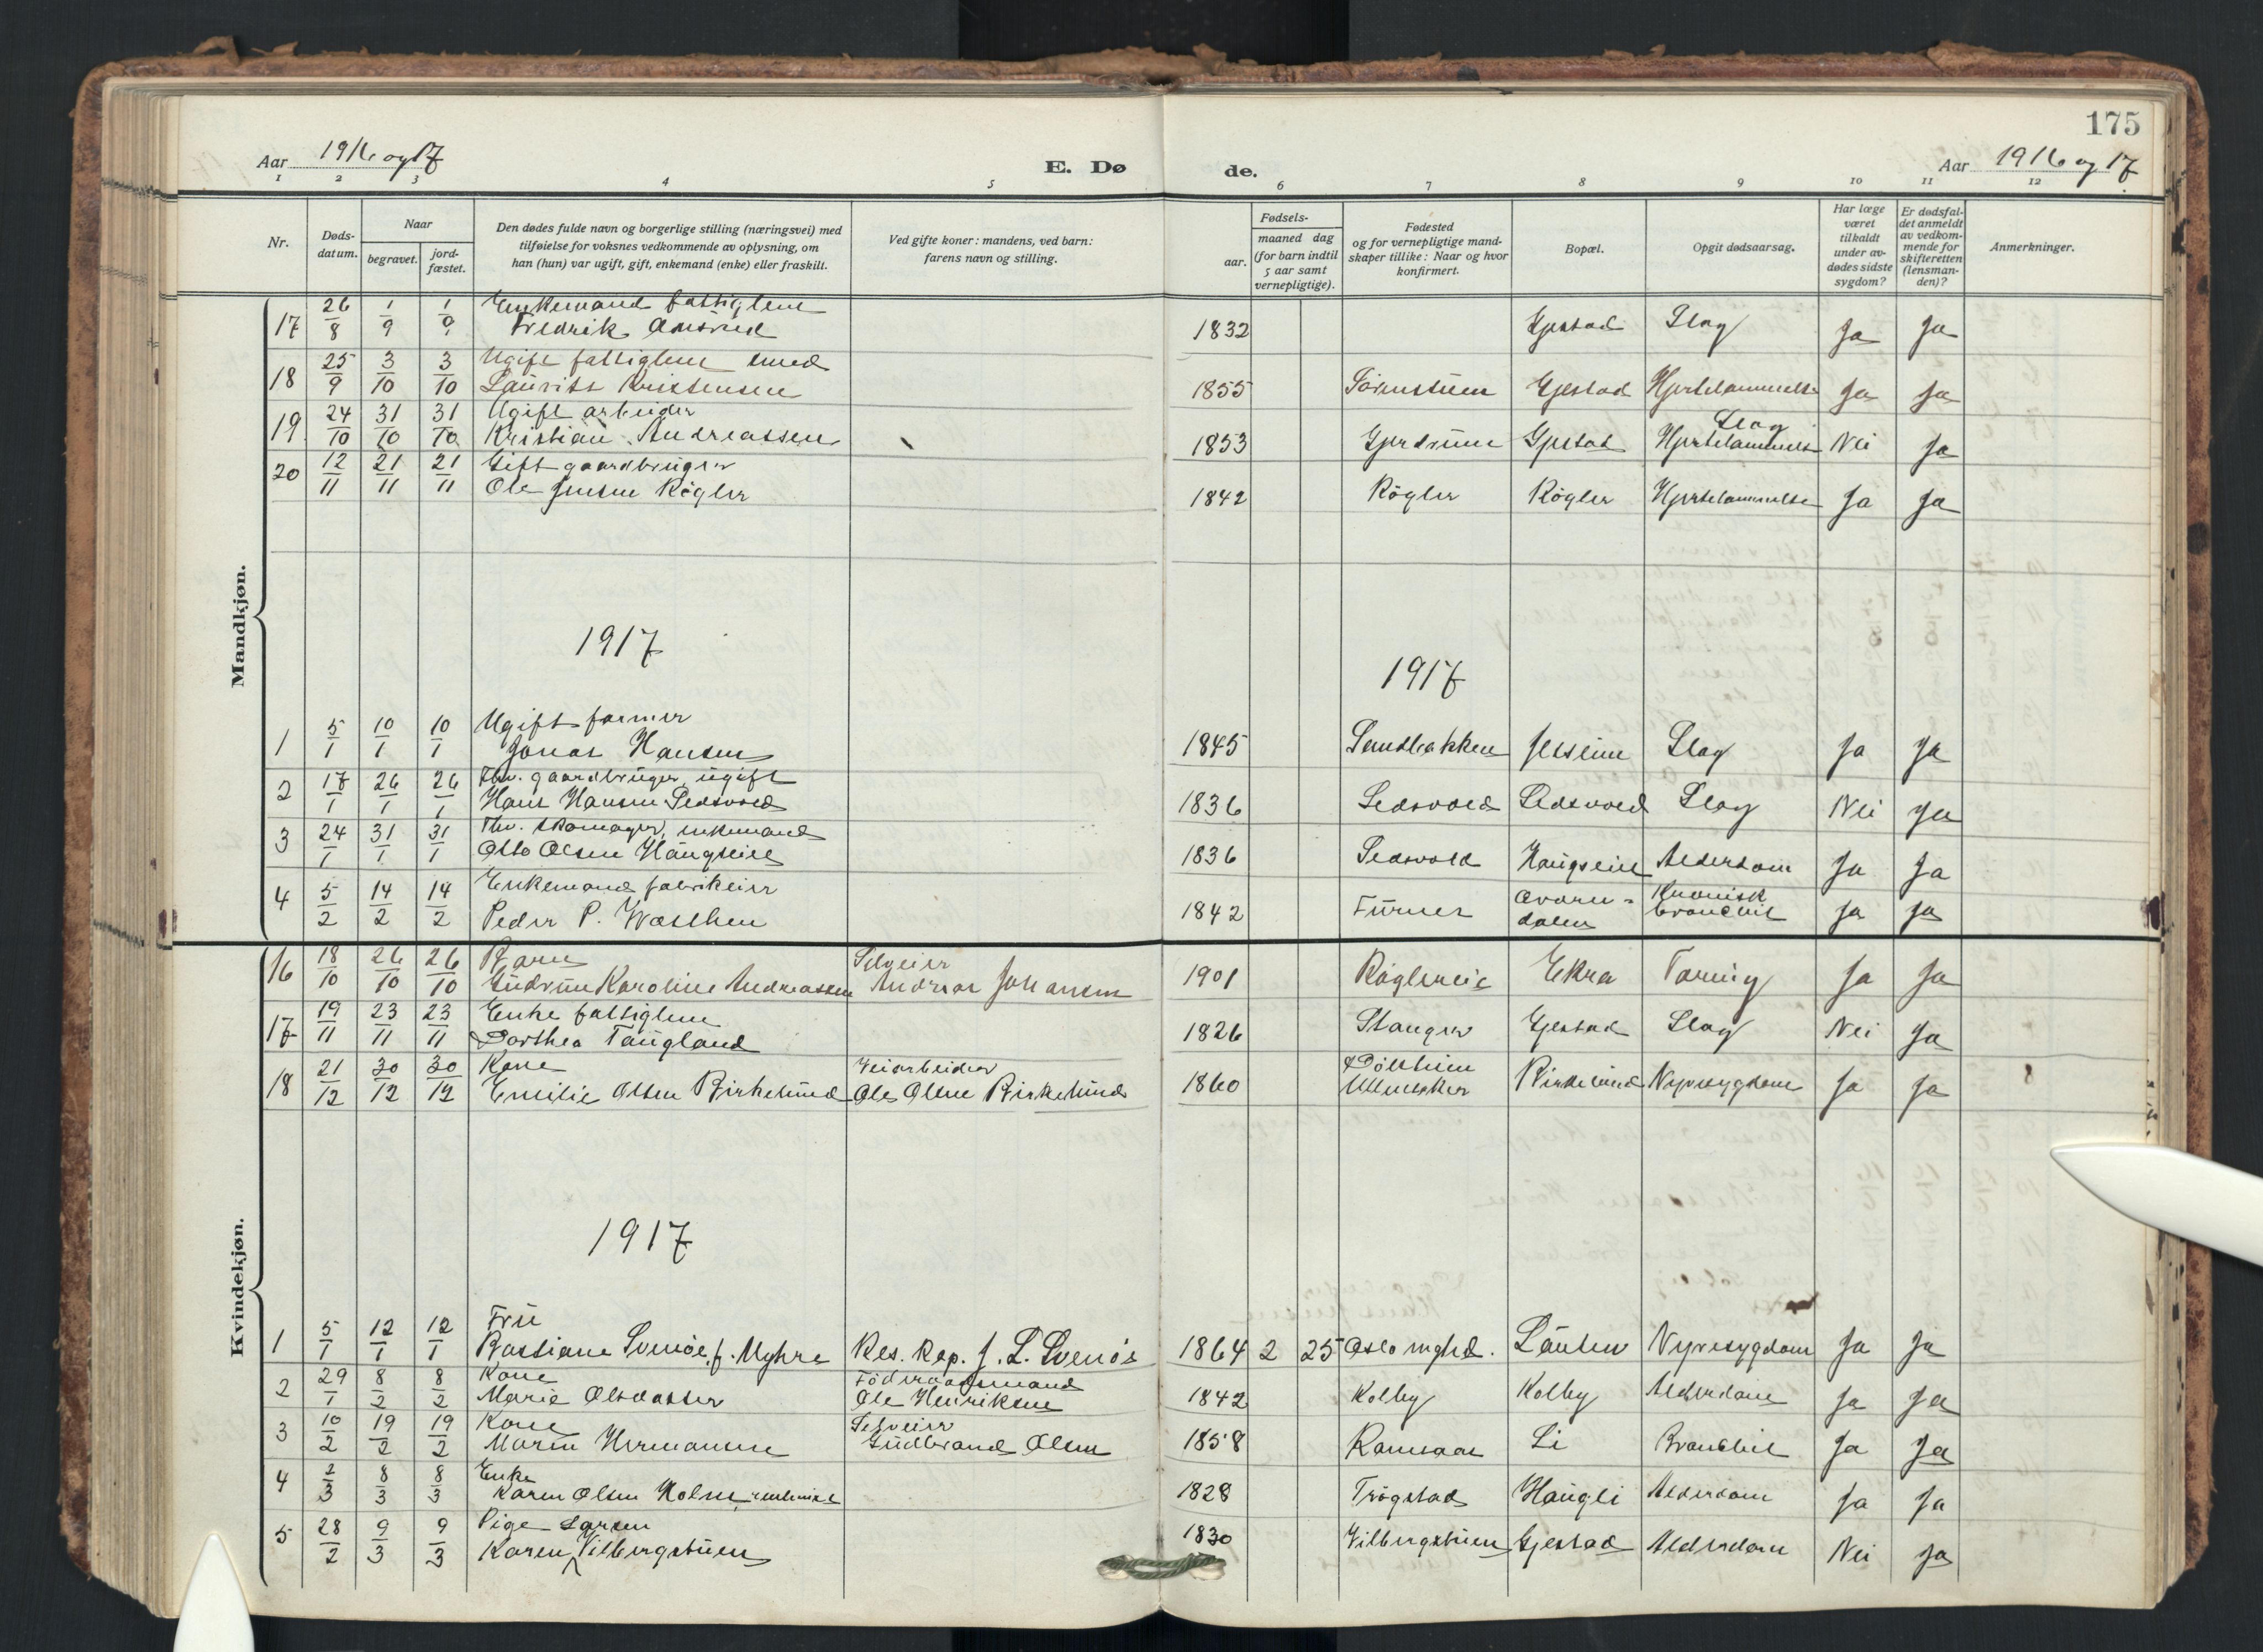 175
Aar 1916 og 17
E. Dø
de.
Aar 1916 og 17
1 2 3 4 5 6 7 8 9 10 11 12
Nr.
Døds-
datum.
Naar
begravet.
jord-
fæstet.
Den dødes fulde navn og borgerlige stilling (næringsvei) med
tilføielse for voksnes vedkommende av oplysning, om
han (hun) var ugift, gift, enkemand (enke) eller fraskilt.
Ved gifte koner: mandens, ved barn:
farens navn og stilling.
Fødsels-
aar.
maaned dag
(for barn indtil
5 aar samt
vernepligtige).
Fødested
og for vernepligtige mand-
skaper tillike: Naar og hvor
konfirmert.
Bopæl.
Opgit dødsaarsag.
Har læge
været
tilkaldt
under av-
dødes sidste
sygdom?
Er dødsfal-
det anmeldt
av vedkom-
mende for
skifteretten
(lensman-
den)?
Anmerkninger.
Mandkjøn.
17 26/8 1/9 1/9 Enkemand fattiglem
Fredrik 1832 Gjestad Slag Ja Ja
18 25/9 3/10 3/10 Ugift fattiglem smed
Laurits Kristensen 1855 Gjestad Hjertelammelse Ja Ja
19 24/10 31/10 31/10 Ugift arbeider
Kristian Andreassen 1853 Gjerdrum Gjestad Slag Hjertelammelse Nei Ja
20 12/11 21/11 21/11 Gift gaardbruger
Ole Jensen Røgler 1842 Røgler Røgler Hjertelammelse Ja Ja
1917
1917
1 5/1 10/1 10/1 Ugift farmer
Jonas Hansen 1845 Sandbakken Jesseim Slag Ja Ja
2 17/1 26/1 26/1 Fhv. gaardbruger, ugift
Hans Hansen Ledsvold 1836 Ledsvold Ledsvold Slag Nei Ja
3 24/1 31/1 31/1 Fhv. skomager, enkemand
Otto Olsen Haugseie 1836 Ledsvold Haugseie Alderdom Ja Ja
4 5/2 14/2 14/2 Enkemand fabrikeier
Peder P. Wæsthen 1842 Furnes dalen Kronisk
bronchit Ja Ja
Kvindekjøn.
16 18/10 26/10 26/10 Barn Selveier
Gudrun Karoline Andreassen Andreas Johansen 1901 Røglereie Ekra Tæring Ja Ja
17 19/11 23/11 23/11 Enke fattiglem
Dorthea Taugland 1826 Stanger Gjestad Slag Nei Ja
18 21/12 30/12 30/12 Kone Veiarbeider
Emilie Olsen Birkelund Ole Olsen Birkelund 1860 Ullensaker Birkelund Nyresygdom Ja Ja
1917
1 5/1 12/1 12/1 Fru
Bastiane Svenøe, f. Myhre Res. Kap. J. L. Svenøe 1864 2 25 Oslo mghd. Lauten Nyresygdom Ja Ja
2 29/1 8/2 8/2 Kone Føderaadsmand
Marie Olsdatter Ole Henriksen 1842 Kolby Kolby Alderdom Ja Ja
3 10/2 19/2 19/2 Kone Selveier
Maren Hermansen Gudbrand Olsen 1858 Ramsaas Li Bronchit Ja Ja
4 2/3 8/3 8/3 Enke
Karen Olsen Holm 1828 Trøgstad Haugli Alderdom Ja Ja
5 28/2 9/3 9/3 Pige Larsen
Karen Vilbergstuen 1830 Vilbergstuen Gjestad Alderdom Nei Ja